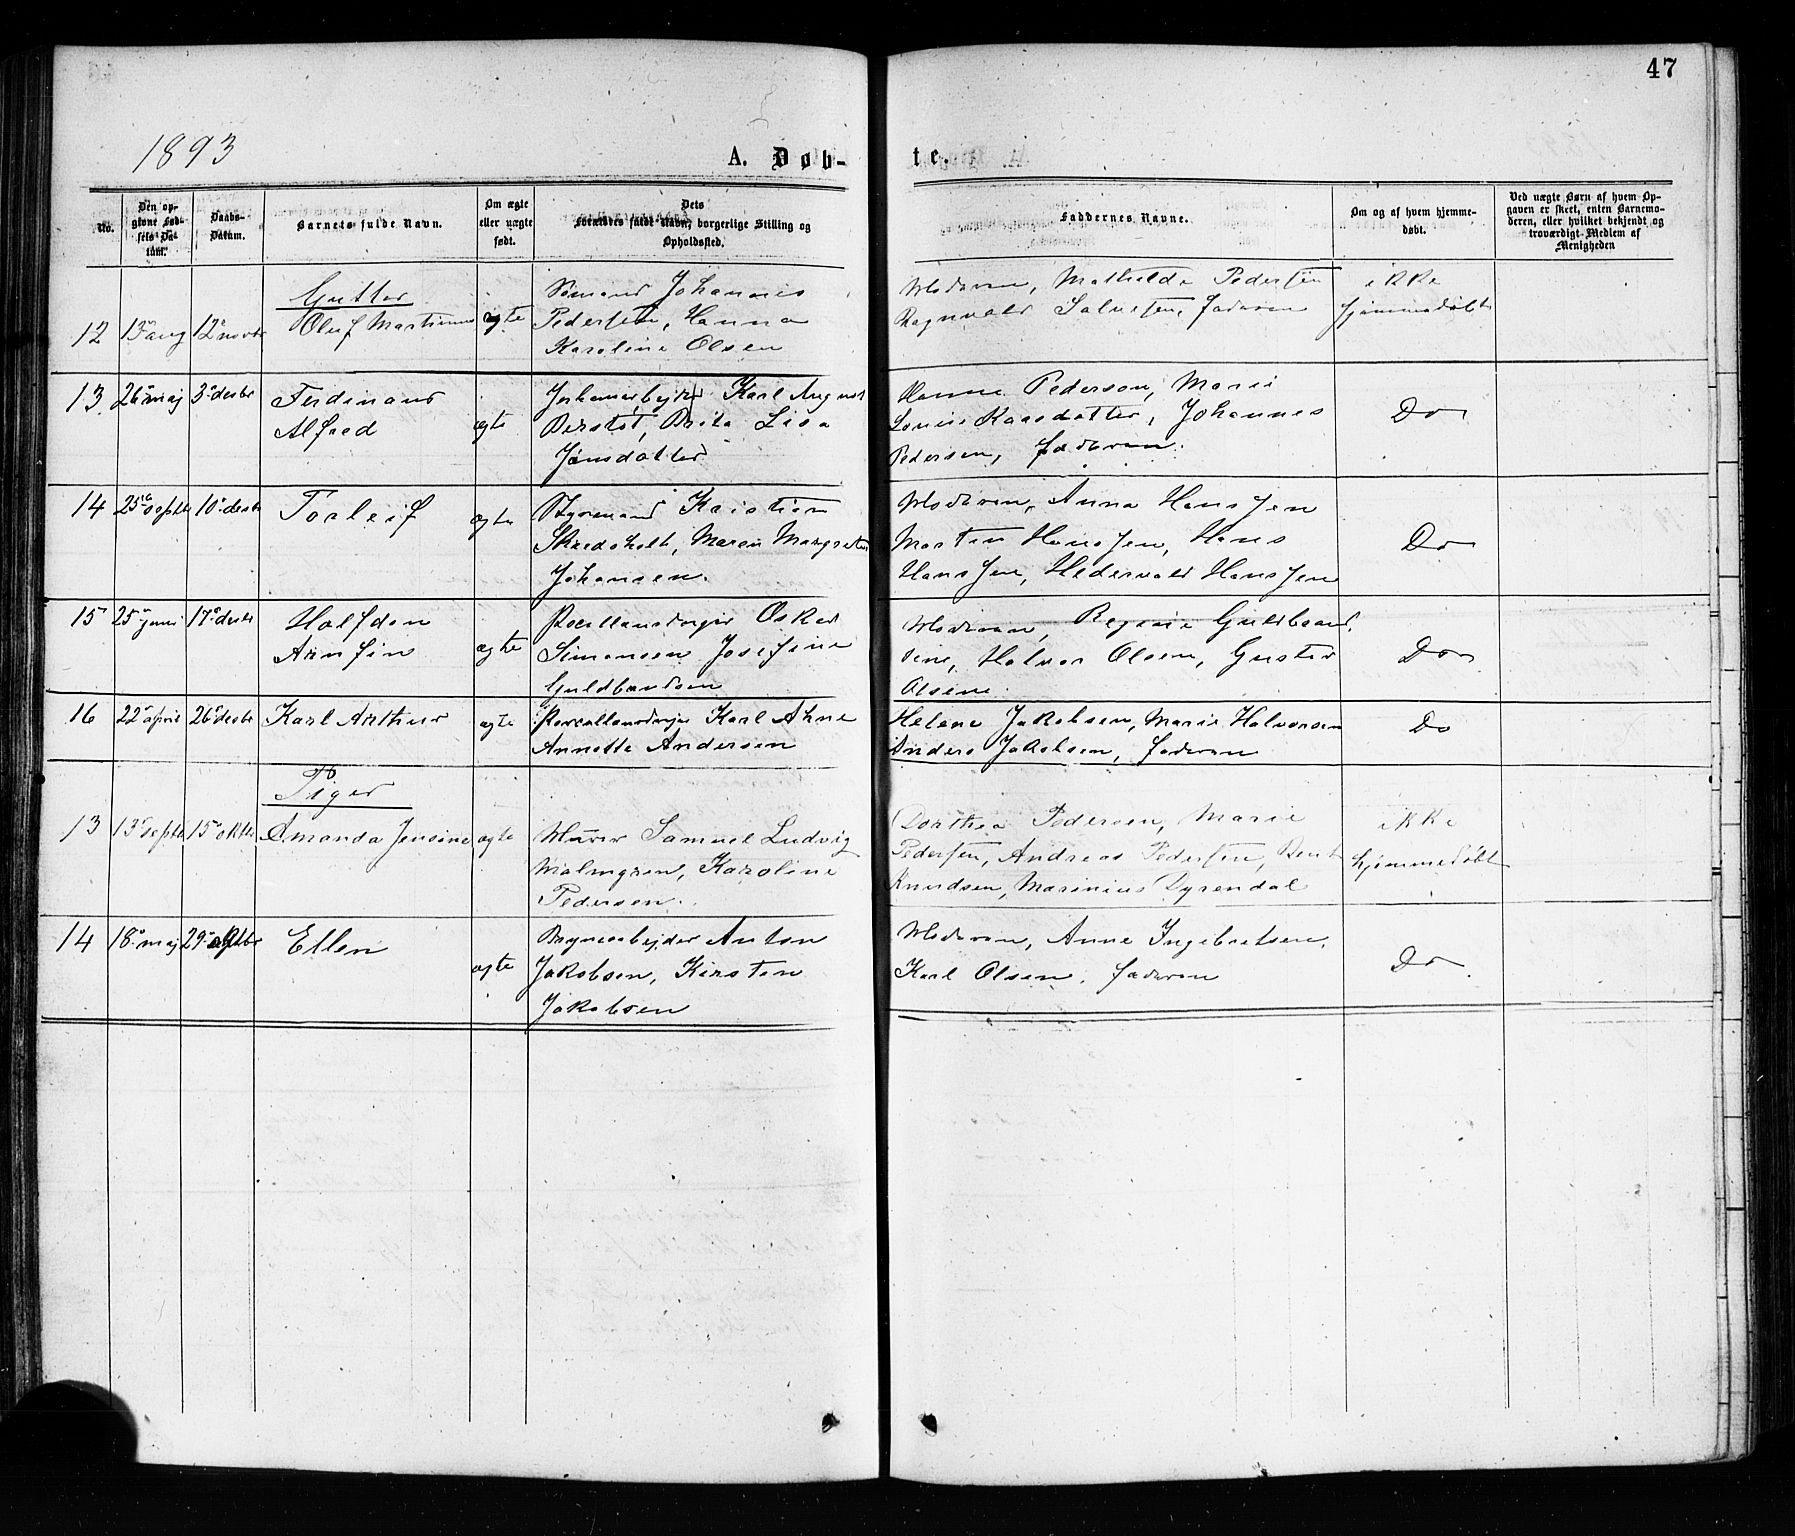 47
1893
A. Døb-
te.
No.
Den op-
givne Fød-
sels Da-
tum.
Daabs-
Datum.
Barnets fulde Navn.
Om ægte
eller uægte
født.
Dets
Forældres fulde Navn, borgerlige Stilling og
Opholdssted.
Faddernes Navne.
Om og af hvem hjemme-
døbt.
Ved uægte Børn af hvem Op-
gaven er skeet, enten Barnemo-
deren, eller hvilket bekjendt og
troværdigt Medlem af
Menigheden
Gutter
12 aug 12 novbr Oluf Martinius ægte
Sømand Johannes
Pedersen, Hanna
Karoline Olsen
Moderen, Mathilde Pedersen
Ragnvald Salvesen, faderen
ikke
hjemmedøbt
13 26 maj 3 desbr Ferdinand
Alfred
ægte
Karl August
Brita Lisa
Jönsdotter
Hanne Pedersen, Marie
Louise Johannes
Pedersen, faderen.
Do
14 25 septbr 10 desbr Torleif ægte
Styrmand Kristian
Skredsholt, Maren Margrete
Johansen.
Moderen, Anna Hansen
Martin Hansen, Hans
Hansen, Hansen
Do
15 25 juni 17 desbr Halfdan
Arnfin
ægte
Oskar
Simonsen Josefine
Guldbandsen
Moderen, Regine Guldbrand-
sine, Halvor Olsen, Gustav
Olsene.
Do
16 22 april 26 desbr Karl Arthur ægte
Karl Ahne
Annette Andersen
Helene Jakobsen, Marie Halvorsen
Anders Jakobsen, faderen
Do
Piger
13 13 septbr 15 oktbr Amanda Jensine ægte
Murer Samuel Ludvig
Malmgren, Karoline
Pedersen.
Dorthea Pedersen, Marie
Pedersen, Andreas Pedersen, Bent
Knudsen, Marinius Dyrendal
ikke
hjemmedøbt
14 18 maj 29 oktbr Ellen ægte
Brugsarbejder Anton
Jakobsen, Kirsten
Jakobsen
Moderen, Anne Ingebretsen,
Karl Olsen, faderen
Do